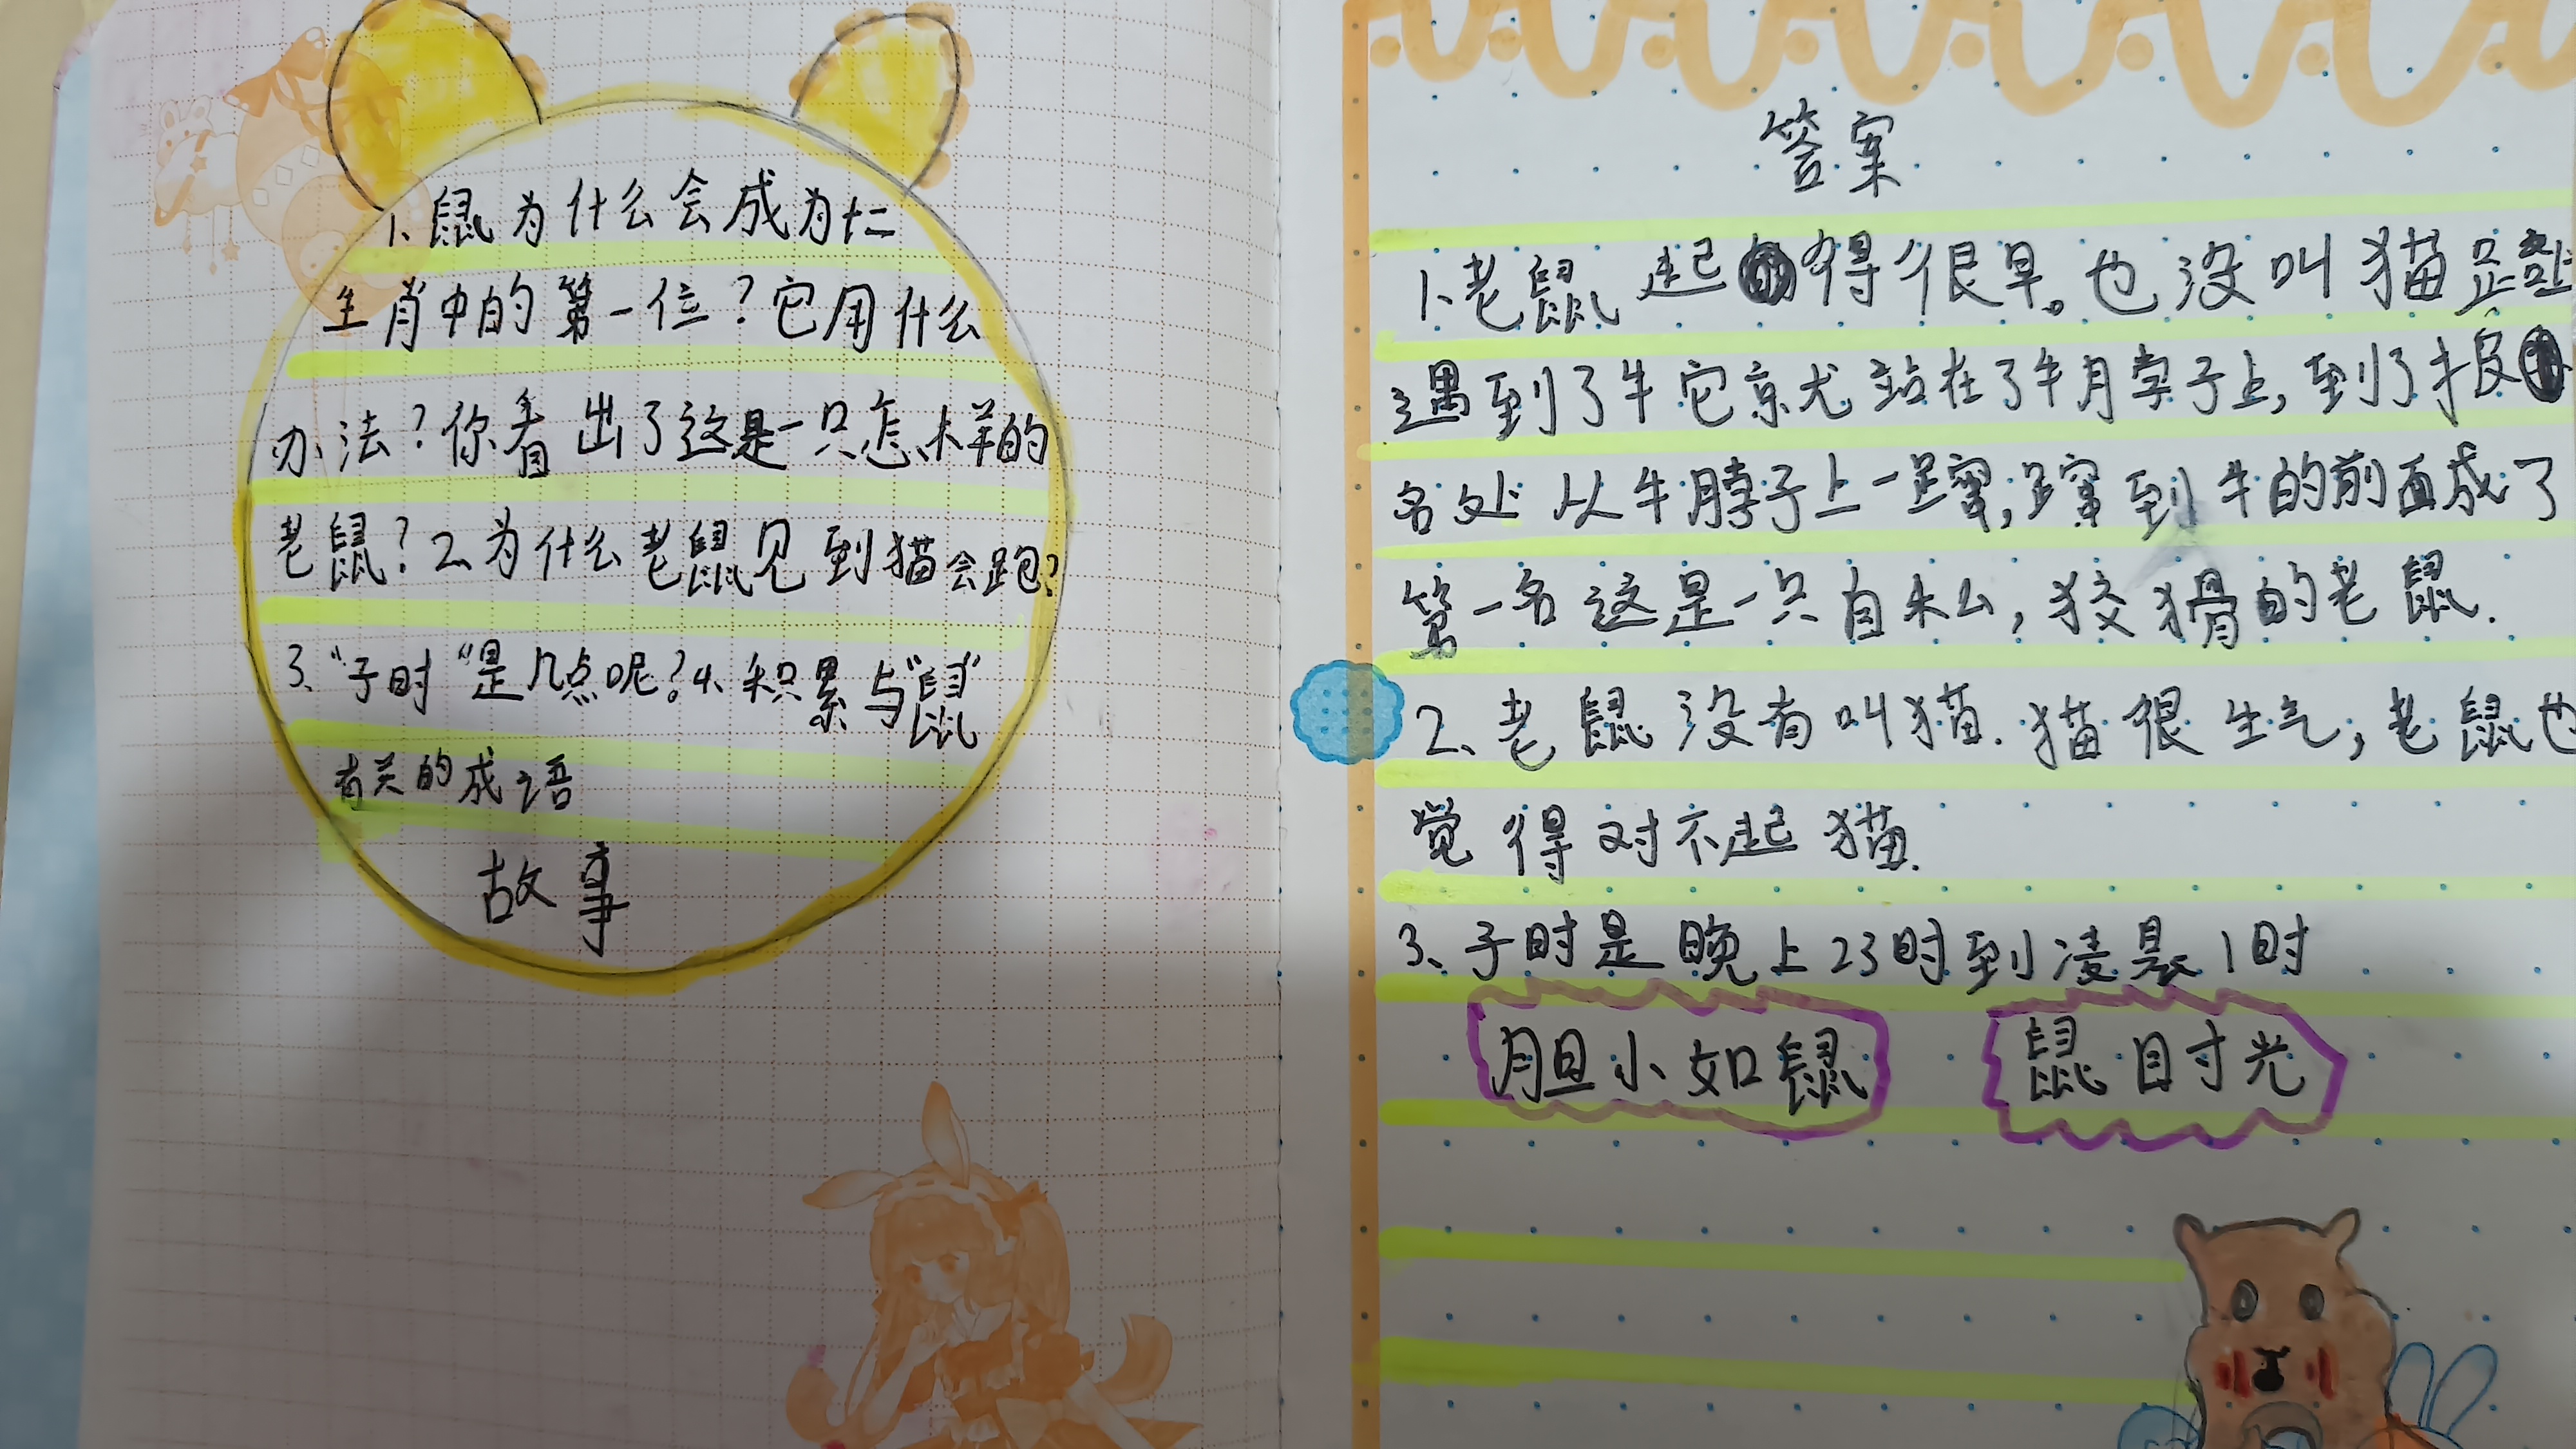 1、鼠为什么会成为十二
生肖中的第一位?它用什么
办法?你看出了这是一只怎样的
老鼠?2、为什么老鼠见到猫会跑?
3、“子时“是几点呢?4、积累与“鼠”
有关的成语
故事
答案
1、老鼠起得很早。也没叫猫
遇到了牛它就站在了牛脖子上,到了报
名处从牛脖子上一蹿,蹿到牛的前面成了
第一名这是一只自私,狡猾的老鼠.
2、老鼠没有叫猫.猫很生气,老鼠也
觉得对不起猫.
3、子时是晚上23时到凌晨1时
胆小如鼠
鼠目寸光